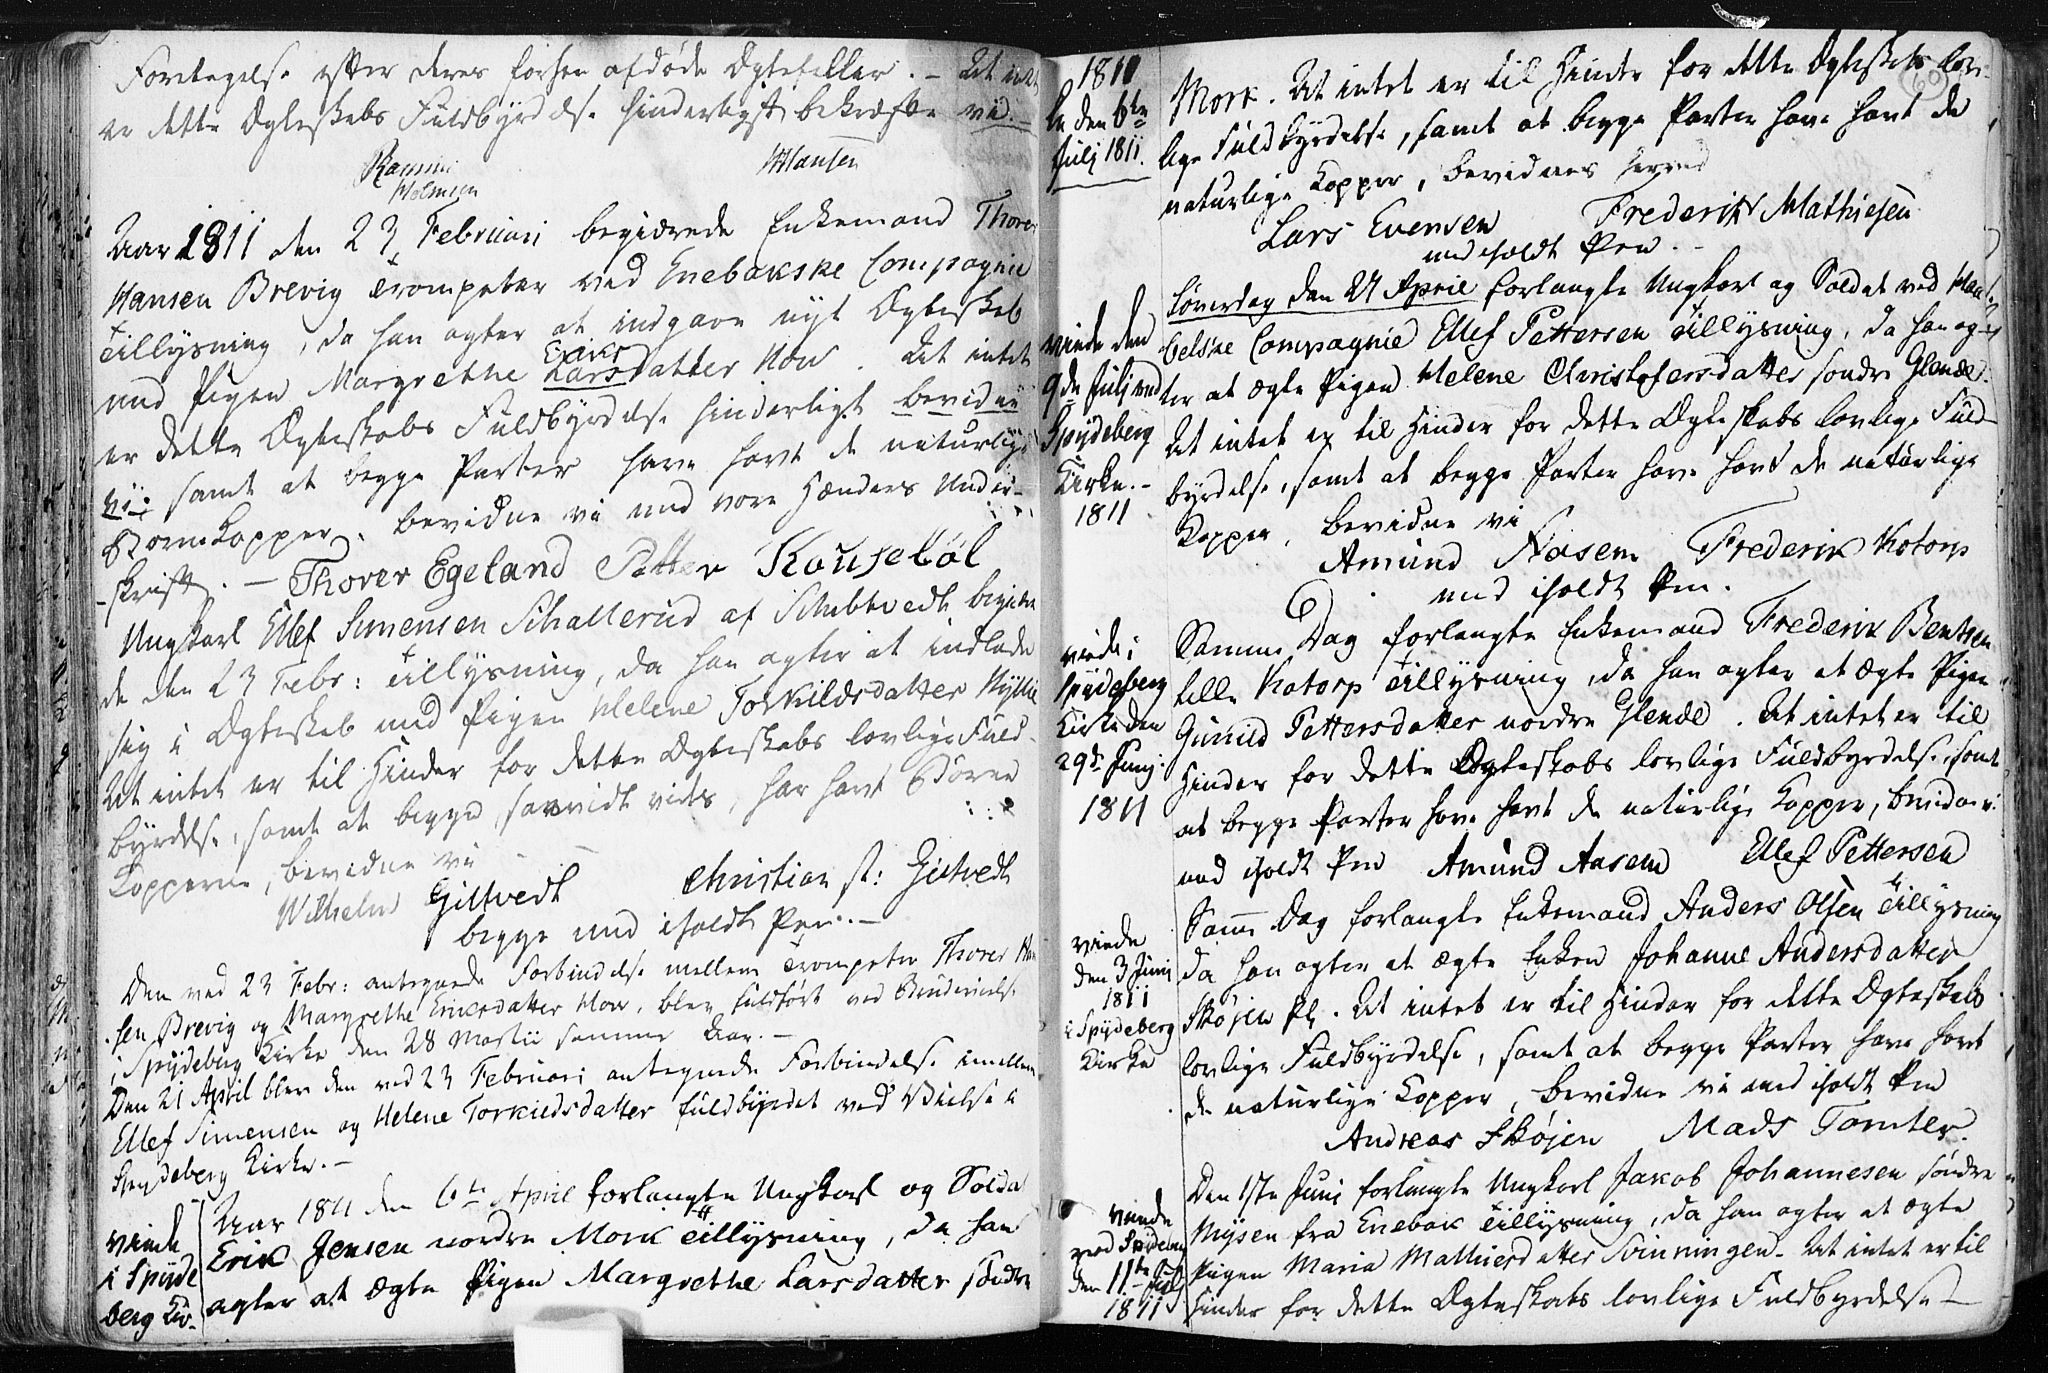 Foretagelse efter deres forhen afdøde Ægtefeller. – At intet
er dette Ægteskabs Fuldbyrdelse hinderligt bekræfte vi. –
Holmsen
Hansen
Aar 1811 den 23 Februari begiærede Enkemand Thorer
Hansen Brevig Trompeter ved Enebakske Compagnie
Tillysning, da han agter at indgaae nyt Ægteskab
med Pigen Margrethe Larsdatter How. At intet
Eriks
er dette Ægteskabs Fuldbyrdelse hinderligt bevidne
vi; samt at begge Parter have havt de naturlige
Børnekopper, bevidne vi med vore Hænders Under-
-skrift. – Thorer Egeland Petter Kouseböl
Ungkarl Ellef Simensen Schallerud af Schibtvedt begiære
de den 23 Febr: Tillysning, da han agter at indlade
sig i Ægteskab med Pigen Helene Torkildsdatter
At intet er til Hinder for dette Ægteskabs lovlige Fuld-
byrdelse, samt at begge, saavidt vides, har havt Børne
Kopperne, bevidne vi
Wilhelm Giltvedt Christian st: Giltvedt
begge med iholdt Pen. –
Den ved 23 Febr: antegnede Forbindelse mellem Trompeter Thorer Han
sen Brevig og Margrethe Ericsdatter How, blev fuldført ved Brudevielse
i Spydeberg Kirke den 28 Martii samme Aar. –
Den 21 April blev den ved 23 Februari antegnede Forbindelse imellem
Ellef Simensen og Helene Torkildsdatter fuldbyrdet ved Vielse i
Spydeberg Kirke. –
viede
i Spyde
berg Kir-
Aar 1811 den 6te April forlangte Ungkarl og Soldat
Erik Jensen nordre Mork Tillysning, da han
agter at ægte Pigen Margrethe Larsdatter søndre
1811
ke den 6te
Julj 1811.
Mork. At intet er til Hinder for dette Ægteskabs lov-
lige Fuldbyrdelse, samt at begge Parter have havt de
naturlige Kopper, bevidnes herved
Lars Evensen Frederik Mathiesen
med iholdt Pen. –
viede den
9de Julj ved
Spydeberg
Kirke. –
1811
Løverdag den 27 April forlangte Ungkarl og Soldat ved
belske Compagnie Ellef Pettersen Tillysning, da han ag-
ter at ægte Pigen Helene Christofersdatter søndre Glende.
At intet er til Hinder for dette Ægteskabs lovlige Fuld-
byrdelse, samt at begge Parter have havt de naturlige
Kopper, bevidne vi
Amund Aasem Frederik Kotorp
med iholdt Pen.
viede i
Spydeberg
Kirke den
29de Junj
1811
Samme Dag forlangte Enkemand Frederik Bentsen
lille Kotorp Tillysning, da han agter at ægte Pigen
Gunild Pettersdatter nordre Glende. At intet er til
Hinder for dette Ægteskabs lovlige Fuldbyrdelse, samt
at begge Parter have havt de naturlige Kopper, bevidne vi
med iholdt Pen Amund Aasem Ellef Pettersen
viede
den 3 Junj
1811
i Spydeberg
Kirke
Samme Dag forlangte Enkemand Anders Olsen Tillysning
da han agter at ægte Enken Johanne Andersdatter
Skøjen Pl. At intet er til Hinder for dette Ægteskabs
lovlige Fuldbyrdelse, samt at begge Parter have havt
de naturlige Kopper, bevidne vi med iholdt Pen
Andreas Skøjen Mads Tomter.
viede
ved Spydeberg
den 11te Julj
1811
Den 1ste Junj forlangte Ungkarl Jakob Johannesen søndre
Mysen fra Enebak Tillysning, da han agter at ægte
Pigen Maria Mathiesdatter Svinningen. At intet er til
Hinder for dette Ægteskabs lovlige Fuldbyrdelse –